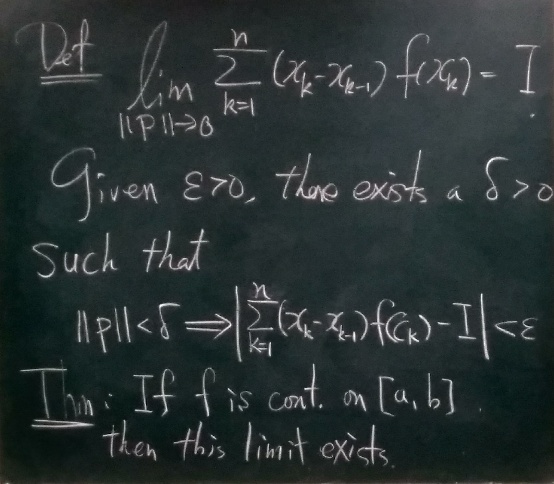 Def lim_{||P||→0} \sum_{k=1}^{n} (x_k - x_{k-1}) f(x_k) = I.
Given ε>0, there exists a δ>0
such that
||p||<δ ⟹ |\sum_{k=1}^{n} (x_k - x_{k-1}) f(c_k) - I| < ε
Thm: If f is cont. on [a, b].
then this limit exists.